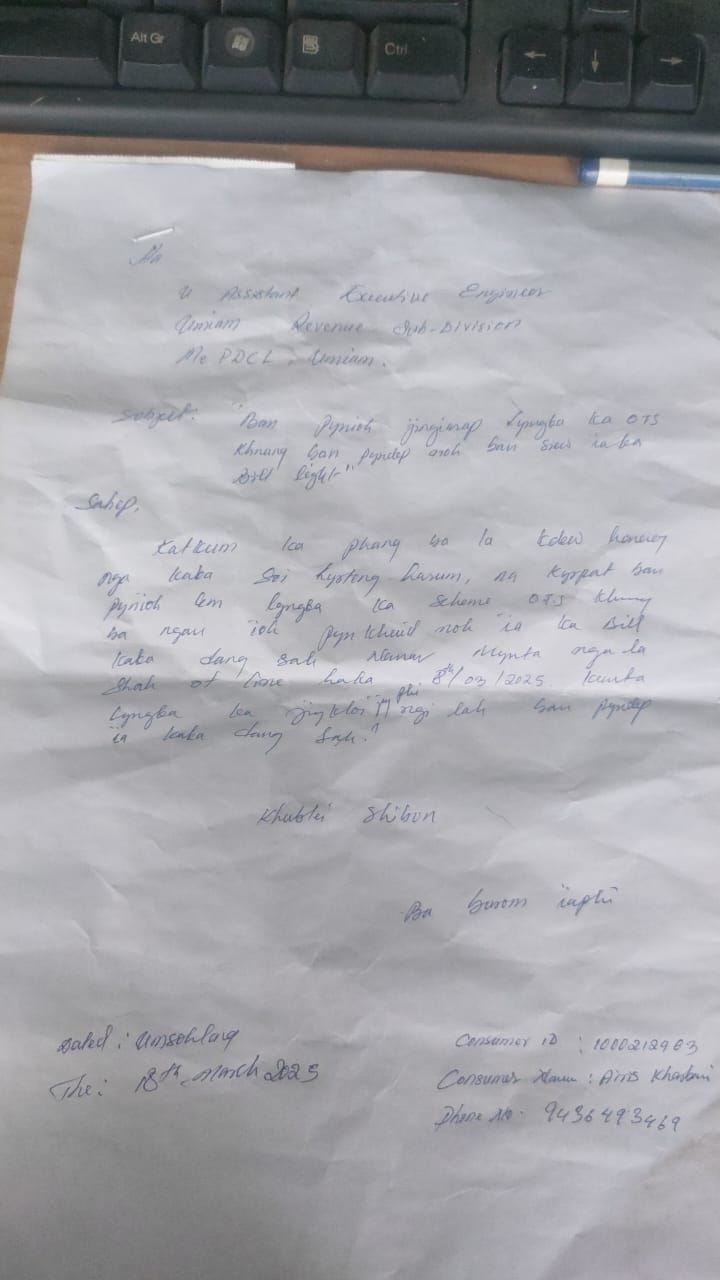 Alt Gr
Ctrl
Ha
U Assistant Executive Engineer
Umiam Revenue Sub-Division
MePDCL, Umiam.
Subject: "Ban pynioh jingiarap lyngba ka OTS
khnang ban pyndep noh ban siew ia ka
Bill light"
Sahep,
Katkum ka phang ba la kdew haneng
nga kaba soi kyrteng harum, nga kyrpad ban
pynioh lem lyngba ka scheme OTS khnang
ba ngan ioh pynkhuid noh ia ka Bill
kaba dang sah Namar mynta nga la
Shah of line haka 8th/03/2025 kumta
lyngba ka jingkloi jong phi ngi lah ban pyndep
ia kaba dang sah."
Khublei Shibun
Ba burom iaphi
Dated: Umsohlang
The: 18th March 2025
Consumer ID : 1000212963
Consumer Name :
Phone No. 9436493469